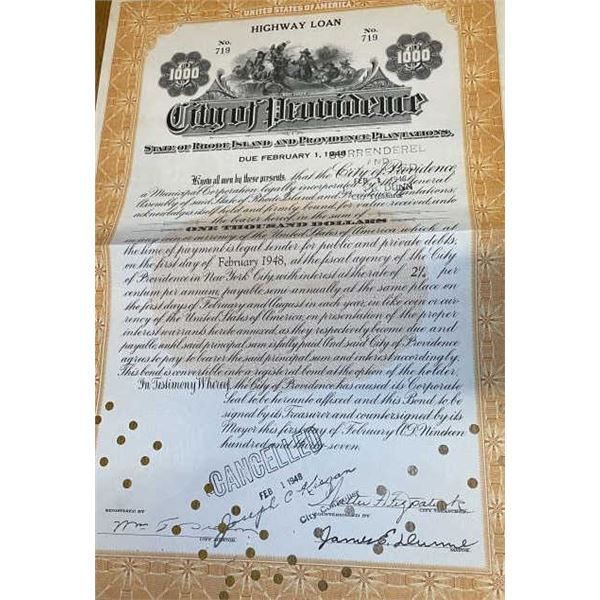 UNITED STATES OF AMERICA
HIGHWAY LOAN
No. 719
No. 719
1000
1000
City of Providence
STATE OF RHODE ISLAND AND PROVIDENCE PLANTATIONS.
DUE FEBRUARY 1, 1948
SURRENDERED
AND
FEB 1946
DUNN
Know all men by these presents, that the City of Providence
a Municipal Corporation legally incorporated by the General
Assembly of said State of Rhode Island and Providence Plantations,
acknowledges itself held and firmly bound, for value received, unto
the bearer hereof in the sum of
ONE THOUSAND DOLLARS
in any coin or currency of the United States of America, which at
the time of payment is legal tender for public and private debts,
on the first day of February 1948, at the fiscal agency of the City
of Providence in New York City, with interest at the rate of 2¼ per
centum per annum, payable semi-annually at the same place on
the first days of February and August in each year, in like coin or cur-
rency of the United States of America, on presentation of the proper
interest warrants hereto annexed, as they respectively become due and
payable, until said principal sum is fully paid. And said City of Providence
agrees to pay to bearer the said principal sum and interest accordingly.
This bond is convertible into a registered bond at the option of the holder.
In Testimony Whereof, the City of Providence has caused its Corporate
Seal to be hereunto affixed and this Bond to be
signed by its Treasurer and countersigned by its
Mayor this first day of February A.D. Nineteen
hundred and thirty-seven.
CANCELLED
FEB 1 1948
Joseph C. Keegan
REGISTERED BY
CITY AUDITOR.
Walter F. Fitzpatrick
COUNTERSIGNED BY
CITY TREASURER.
James E. Dunne
MAYOR.